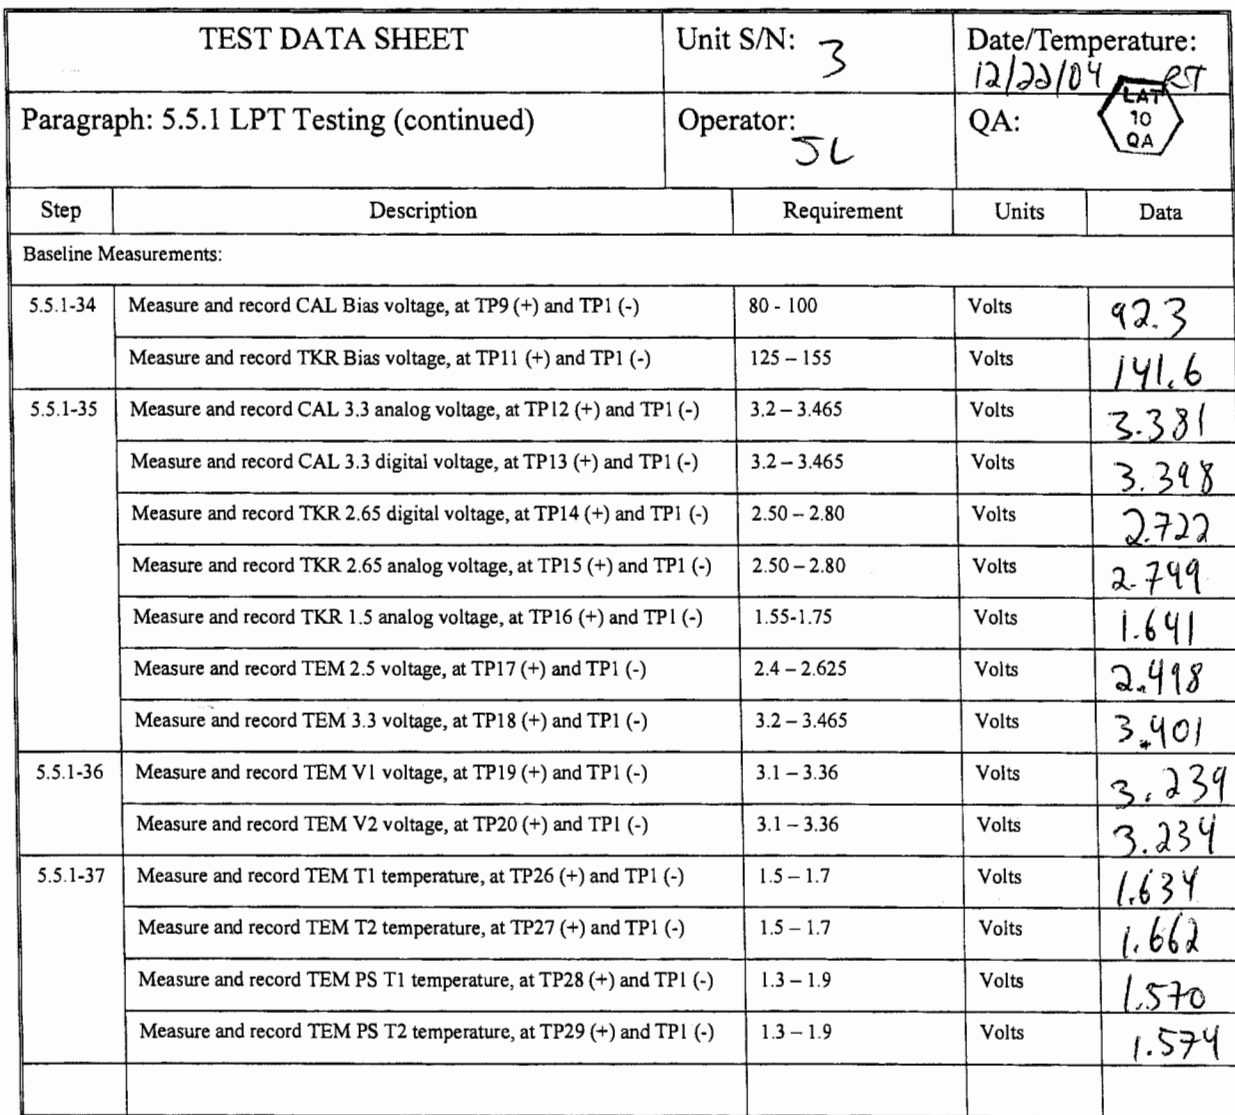 TEST DATA SHEET
Unit S/N: 3
Date/Temperature:
12/22/04 RT
Paragraph: 5.5.1 LPT Testing (continued)
Operator: JL
QA:
LAT
10
QA
Step Description Requirement Units Data
Baseline Measurements:
5.5.1-34 Measure and record CAL Bias voltage, at TP9 (+) and TP1 (-) 80 - 100 Volts 92.3
Measure and record TKR Bias voltage, at TP11 (+) and TP1 (-) 125 – 155 Volts 141.6
5.5.1-35 Measure and record CAL 3.3 analog voltage, at TP12 (+) and TP1 (-) 3.2 – 3.465 Volts 3.381
Measure and record CAL 3.3 digital voltage, at TP13 (+) and TP1 (-) 3.2 – 3.465 Volts 3.398
Measure and record TKR 2.65 digital voltage, at TP14 (+) and TP1 (-) 2.50 – 2.80 Volts 2.722
Measure and record TKR 2.65 analog voltage, at TP15 (+) and TP1 (-) 2.50 – 2.80 Volts 2.749
Measure and record TKR 1.5 analog voltage, at TP16 (+) and TP1 (-) 1.55-1.75 Volts 1.641
Measure and record TEM 2.5 voltage, at TP17 (+) and TP1 (-) 2.4 – 2.625 Volts 2.498
Measure and record TEM 3.3 voltage, at TP18 (+) and TP1 (-) 3.2 – 3.465 Volts 3.401
5.5.1-36 Measure and record TEM V1 voltage, at TP19 (+) and TP1 (-) 3.1 – 3.36 Volts 3.239
Measure and record TEM V2 voltage, at TP20 (+) and TP1 (-) 3.1 – 3.36 Volts 3.234
5.5.1-37 Measure and record TEM T1 temperature, at TP26 (+) and TP1 (-) 1.5 – 1.7 Volts 1.634
Measure and record TEM T2 temperature, at TP27 (+) and TP1 (-) 1.5 – 1.7 Volts 1.662
Measure and record TEM PS T1 temperature, at TP28 (+) and TP1 (-) 1.3 – 1.9 Volts 1.570
Measure and record TEM PS T2 temperature, at TP29 (+) and TP1 (-) 1.3 – 1.9 Volts 1.574